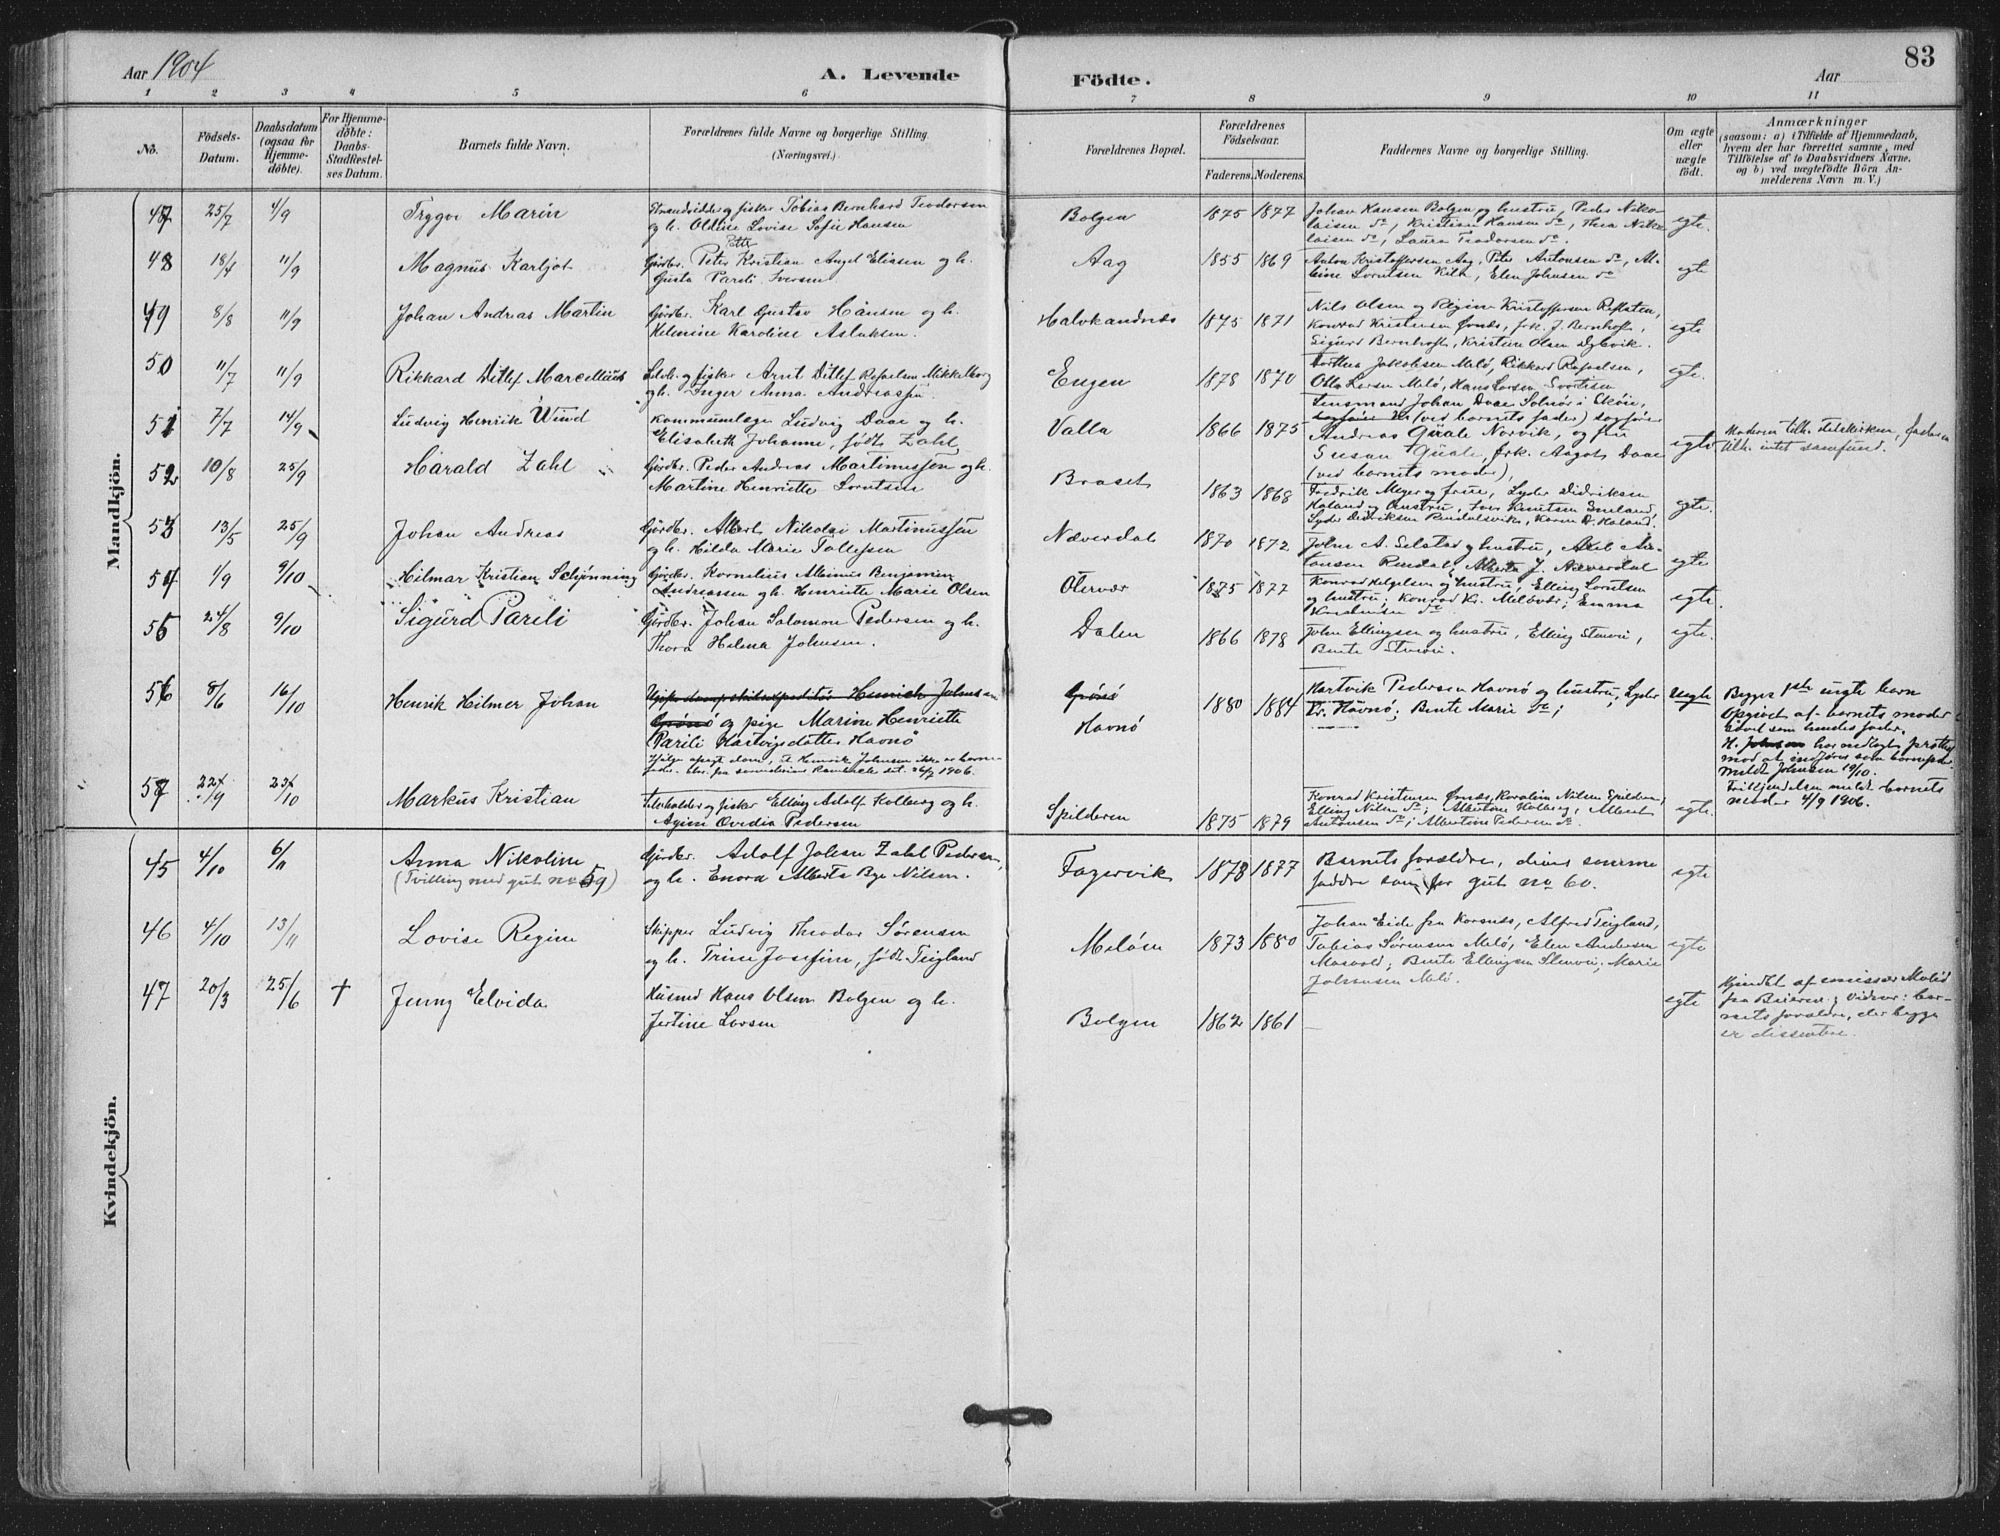 83
Aar 1904
A. Levende
Födte.
Aar
1 2 3 4 5 6 7 8 9 10 11
No.
Födsels-
Datum.
Daabsdatum
(ogsaa for
Hjemme-
döbte).
For Hjemme-
döbte:
Daabs-
Stadfæstel-
ses Datum.
Barnets fulde Navn.
Forældrenes fulde Navne og borgerlige Stilling.
(Næringsvei.)
Forældrenes Bopæl.
Forældrenes
Födselsaar.
Faderens. Moderens.
Faddernes Navne og borgerlige Stilling.
Om ægte
eller
uægte
födt.
Anmærkninger
(saasom: a) i Tilfælde af Hjemmedaab,
hvem der har forrettet samme, med
Tilföielse af to Daabsvidners Navne,
og b) ved uægtefödte Börn An-
melderens Navn m. V.)
Mandkjön.
47 25/7 4/9 Tryggve Marin
Strandsidder og fisker Tobias Bernhard Teodorsen
og h. Oldine Lovise Sofie Hansen
Bolgen 1875 1877
Johan Hansen Bolgen og hustru, Peder Niko-
laisen do, Kristian Hansen do, Thea Niko-
laisen do, Laura Teodorsen do.
egte.
48 18/4 11/9 Magnus Karljot
Petter
Gårdbr. Peter Kristian Angel Elissen og h.
Gusta Pareli Iversen
Aag 1855 1869
Anton Kristoffersen Aag, Peter Antonsen do, Al-
bine Lorntsen Kila, Elen Johnsen do
egte
49 8/8 11/9 Johan Andreas Martin
Gårdbr. Karl Gustav Hansen og h.
Helmine Karoline Aslaksen.
Halvkandnæs 1875 1871
Nils Olsen og Regine Kristoffersen Reflaten,
Konrad Kristensen Ørnes, frk. J. Bernhoft,
Sigurd Bernhoft, Kristian Olsen Dybvik.
egte
50 11/7 11/9 Rikkard Ditlef Marcellius
Selvh. og fisker Arnt Ditlef Rafaelsen Mikkelborg
og h. Inger Anna Andreassen
Engen 1878 1870
Dorthea Jakobsen Melö, Rikkard Rafaelsen,
Otto Larsen Melö, Hans Larsen Svartisen
egte.
51 7/7 14/9 Ludvig Henrik Wind
Kommunelæge Ludvig Daae og h.
Elisabeth Johanne, født Zahl
Valla 1866 1875
Lensmand Johan Daae Solnör i Sköie,
(ved barnets fader) sagfører
Andreas Quale Norvik, og fru
Susan Quale, frk. Aagot Daae
(ved barnets moder),
egte
Moderen tilh. statskirken, faderen
tilh. intet samfund.
52 10/8 25/9 Harald Zahl
Gårdbr. Peder Andreas Martinussen og h.
Martine Henriette Lorntsen
Braset 1863 1868
Fredrik Meyer og frue, Lyder Didriksen
Haland og hustru, Iver Knutsen Eneland,
Lyder Didriksen Rendalsvik, Karen D. Haland.
egte.
53 13/5 25/9 Johan Andreas
Gårdbr. Albert Nikolai Martinussen
og h. Hilda Marie Tollefsen
Næverdal 1870 1872
John A. Selstad og hustru, Axel An-
tonsen Rendal, Alberta J. Næverdal
egte
54 1/9 9/10 Hilmar Kristian Schjønning
Gårdbr. Kornelius Albinus Benjamin
Andreassen og h. Henriette Marie Olsen
Otervær 1875 1877
Konrad Helgesen og hustru, Elling Lorntsen
og hustru; Konrad Kr. Melövær; Emma
Kristensen do
egte.
55 24/8 9/10 Sigurd Pareli
Gårdbr. Johan Salomon Pedersen og h.
Thora Helena Johnsen.
Dalen 1866 1878
John Ellingsen og hustru, Elling Stenvei,
Bente Stenvei
egte.
56 8/6 16/10 Henrik Hilmer Johan
Henrich Johnsen
Grønö og pige Marine Henriette
Pareli Hartvigsdatter Havnö
Ifølge afsagt dom, at Henrik Johnsen ikke er barne-
fader 1906.
Grønö
Havnö
1880 1884
Hartvik Pedersen Havnö og hustru, Lyder
Kr. Havnö, Bente Marie do;
uegte
Begges 1ste uegte barn
Opgivet af barnets moder
såvel som hendes fader.
H. Johnsen har nedlagt protest
mod at indføres som barnefader.
Meldt Johnsen 19/10.
Frikjendelsen meldt barnets
moder 4/9 1906.
57 22/9 23/10 Markus Kristian
Selvholder og fisker Elling Adolf Kolberg og h.
Agine Ovedia Pedersen
Spilderen 1875 1879
Konrad Kristensen Ørnæs, Karoline Nilsen Spilderen,
Elling Nilsen do; Albertine Kolberg, Albert
Antonsen do; Albertine Pedersen do.
egte.
Kvindekjön.
45 4/10 6/11 Anna Nikoline
(Tvilling med gut no 59)
Gårdbr. Adolf Johan Zahl Pedersen,
og h. Enora Alberta Bye Nilsen.
Fagervik 1878 1877
Barnets forældre, dines samme
faddre som for gut no 60.
egte
46 4/10 13/11 Lovise Regine
Skipper Ludvig Theodor Sörensen
og h. Trine Josefine, født Teigland
Melöen 1873 1880
Johan Eide fra Korsnæs, Alfred Teigland,
Tobias Sörensen Melö, Elen Andersen
Mosvold; Bente Ellingsen Stenvei; Marie
Johansen Melö.
egte
47 20/3 25/6 † Jenny Elvida
Husmd Hans Olsen Bolgen og h.
Jertine Larsen
Bolgen 1862 1861 —
egte
Hjmdøbt af emissær Molid
fra Beieren; Vidner: bar-
nets forældre, der begge
er dissentere.